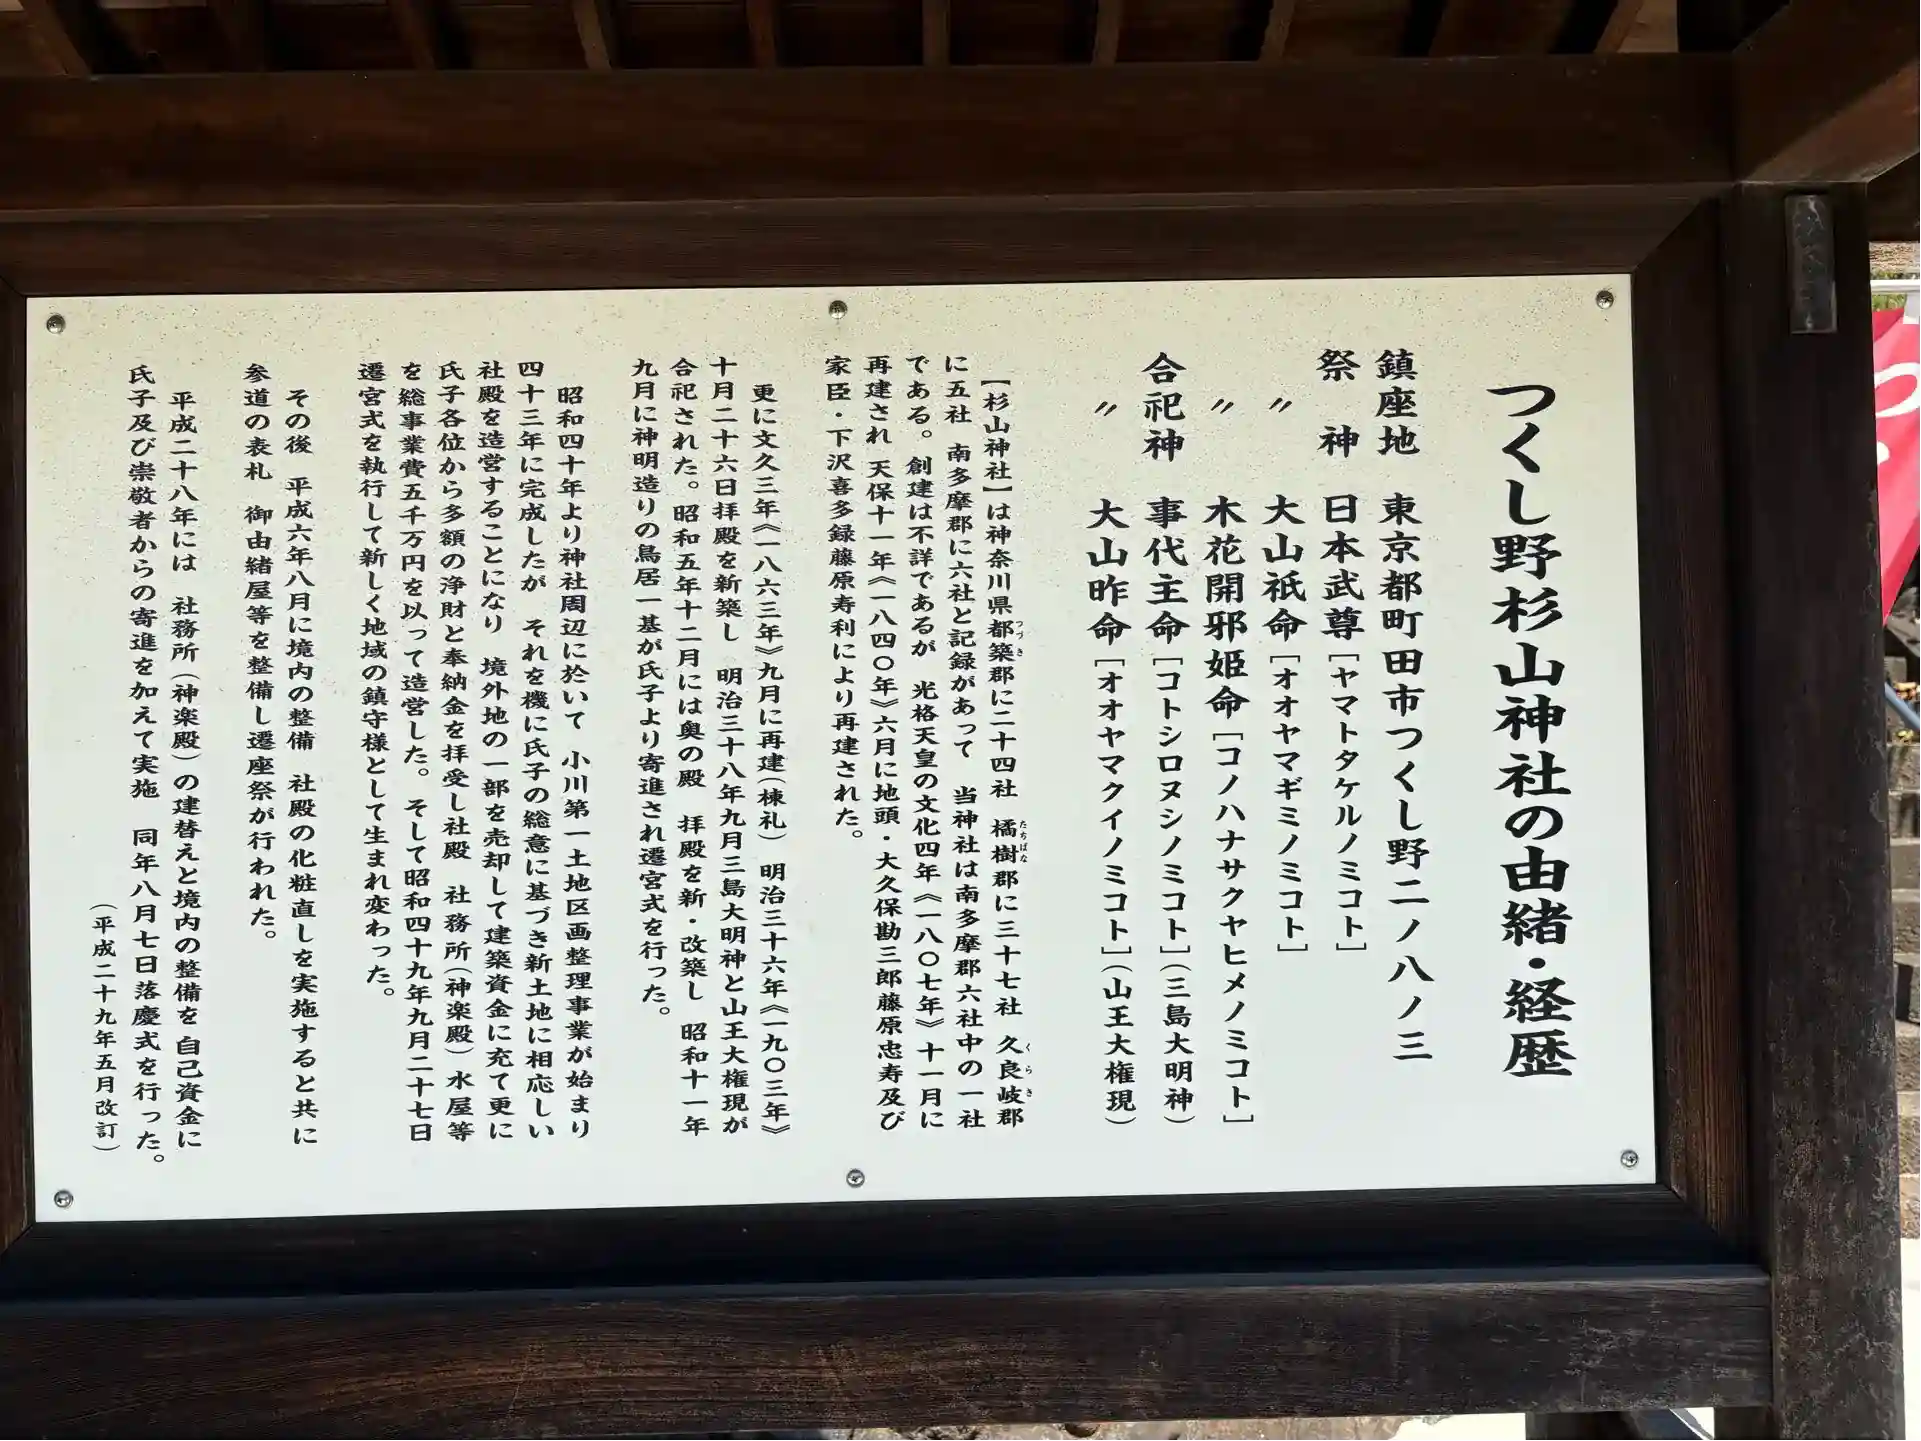 つくし野杉山神社の由緒・経歴
鎮座地 東京都町田市つくし野二ノ八ノ三
祭神 日本武尊[ヤマトタケルノミコト]
〃 大山祇命[オオヤマギミノミコト]
〃 木花開邪姫命[コノハナサクヤヒメノミコト]
合祀神 事代主命[コトシロヌシノミコト](三島大明神)
〃 大山昨命[オオヤマクイノミコト](山王大権現)
【杉山神社】は神奈川県都築郡に二十四社 橘樹郡に三十七社 久良岐郡
つづき たちばな くらき
に五社 南多摩郡に六社と記録があって 当神社は南多摩郡六社中の一社
である。創建は不詳であるが 光格天皇の文化四年《一八〇七年》十一月に
再建され 天保十一年《一八四〇年》六月に地頭・大久保勘三郎藤原忠寿及び
家臣・下沢喜多録藤原寿利により再建された。
更に文久三年《一八六三年》九月に再建(棟札) 明治三十六年《一九〇三年》
十月二十六日拝殿を新築し 明治三十八年九月三島大明神と山王大権現が
合祀された。昭和五年十二月には奥の殿 拝殿を新・改築し 昭和十一年
九月に神明造りの鳥居一基が氏子より寄進され遷宮式を行った。
昭和四十年より神社周辺に於いて 小川第一土地区画整理事業が始まり
四十三年に完成したが それを機に氏子の総意に基づき新土地に相応しい
社殿を造営することになり 境外地の一部を売却して建築資金に充て更に
氏子各位から多額の浄財と奉納金を拝受し社殿 社務所(神楽殿)水屋等
を総事業費五千万円を以って造営した。そして昭和四十九年九月二十七日
遷宮式を執行して新しく地域の鎮守様として生まれ変わった。
その後 平成六年八月に境内の整備 社殿の化粧直しを実施すると共に
参道の表札 御由緒屋等を整備し遷座祭が行われた。
平成二十八年には 社務所(神楽殿)の建替えと境内の整備を自己資金に
氏子及び崇敬者からの寄進を加えて実施 同年八月七日落慶式を行った。
(平成二十九年五月改訂)